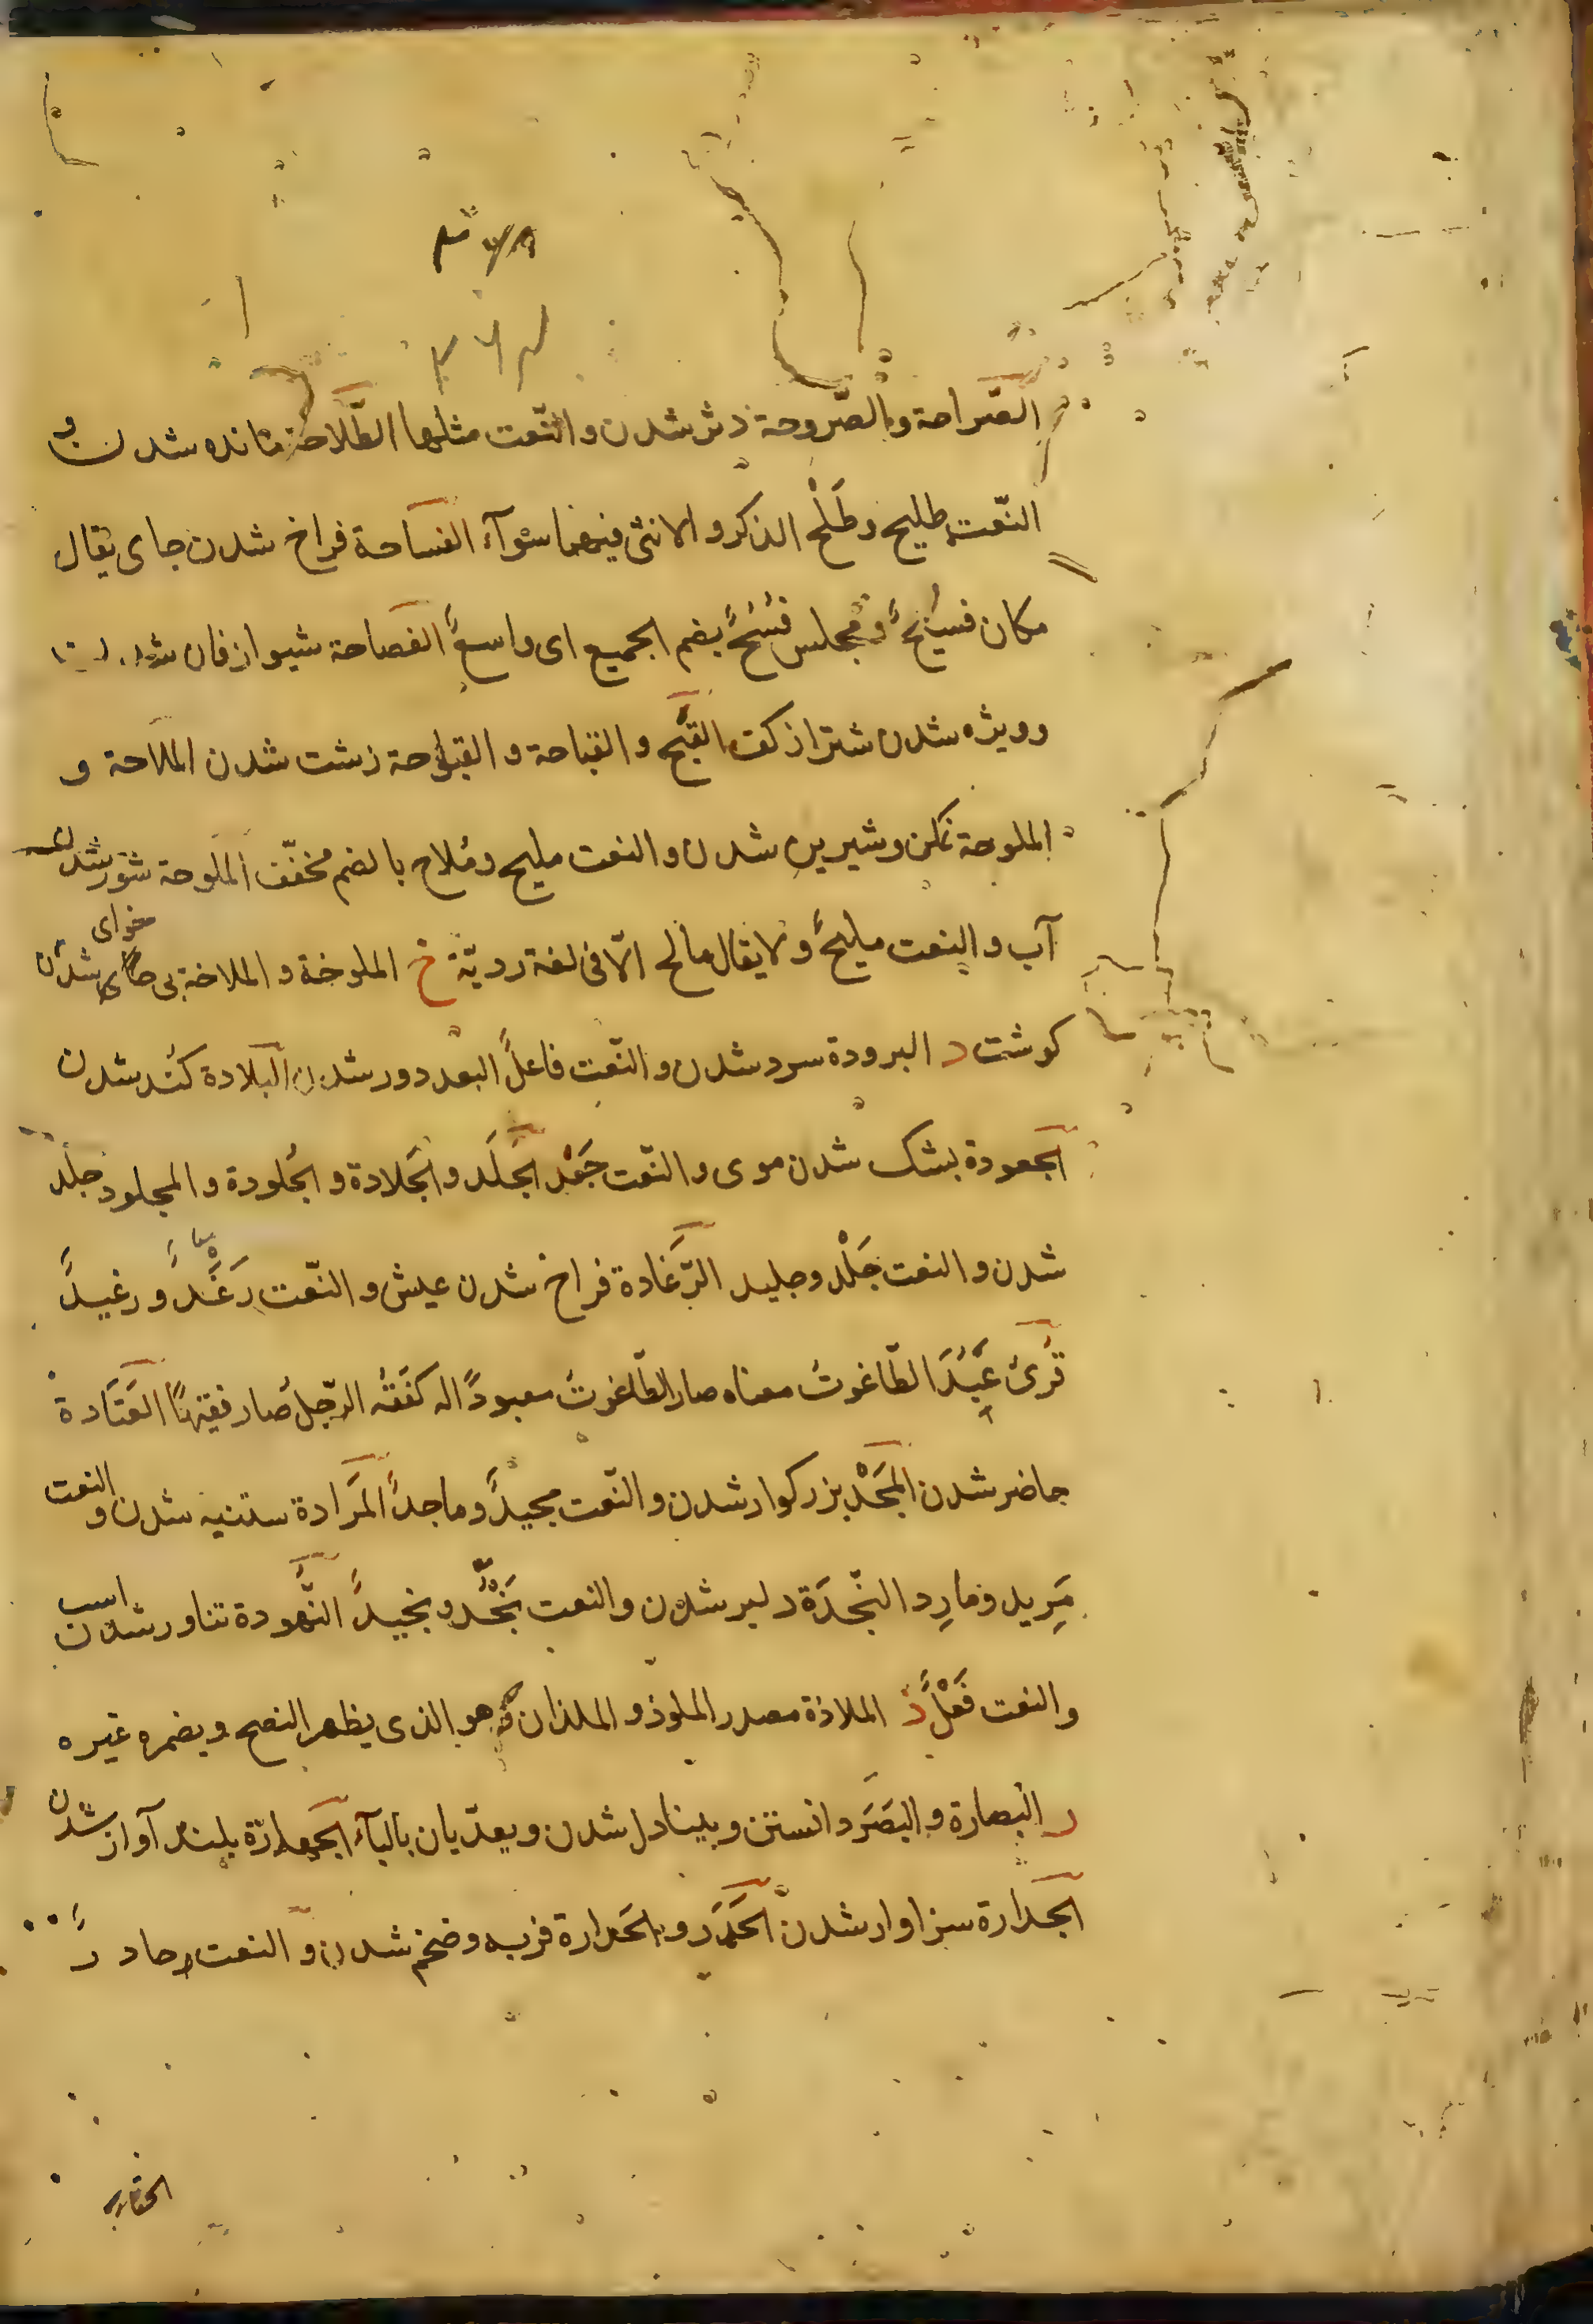 الصّراحة والصّروحة ذثر شدن والنّعت مثلها الطّلاحة مانده شدن و
النّعت طليح وطَلْح الذكر والانثى فيهما سَوآء الفساحة فراخ شدن جاى يقال
مكان فسيحٌ ومجلس فُسُحٌ بضم الجميع اى واسعٌ الفصاحة شيوا زفان شدن
وويژه شدن شتر از كف القُبح والقباحة والقبوحة زشت شدن الملاحة و
الملوحة نمكن وشيرين شدن والنعت مليح ومُلاح بالضم مخفّف الملوحة شور شدن
آب والنعت مليحٌ ولا يقال مالح الّا فى لغة رديّة خ الملوخة والملاخة بى مزاى شدن
كوشت د البرودة سرد شدن والنّعت فاعلٌ البعد دور شدن البلادة كند شدن
الجعودة بشك شدن موى والنّعت جَعْد الجَلَد والجَلادة والجُلودة والمجلود جلد
شدن والنعت جَلْد وجليد الرَّغادة فراخ شدن عيش والنّعت رَغَدٌ ورغيدٌ
قُرئ عَبُدَ الطّاغوتُ معناه صار الطّاغوتُ معبودًا له كفَقُه الرّجلُ صار فقيهًا العَتَادة
حاضر شدن المَجْد بزركوار شدن والنّعت مجيدٌ وماجدٌ المَرادة ستنبه شدن والنعت
مَرِيد ومَارِد النّجدَة دلير شدن والنعت نَجُْد ونجيدٌ النُّهودة تناور شدن اسب
والنعت فَعْلٌ ذ الملاذة مصدر الملوذ والملذان وهو الذى يظهر النصح ويضمر غيره
ر البصارة والبَصَر دانستن وبينا دل شدن ويعدّيان بالبآء الجهارة بلند آواز شدن
الجدارة سزاوار شدن الحَدَر والحَدارة فربه وضخم شدن والنعت حادرٌ
الحقارة